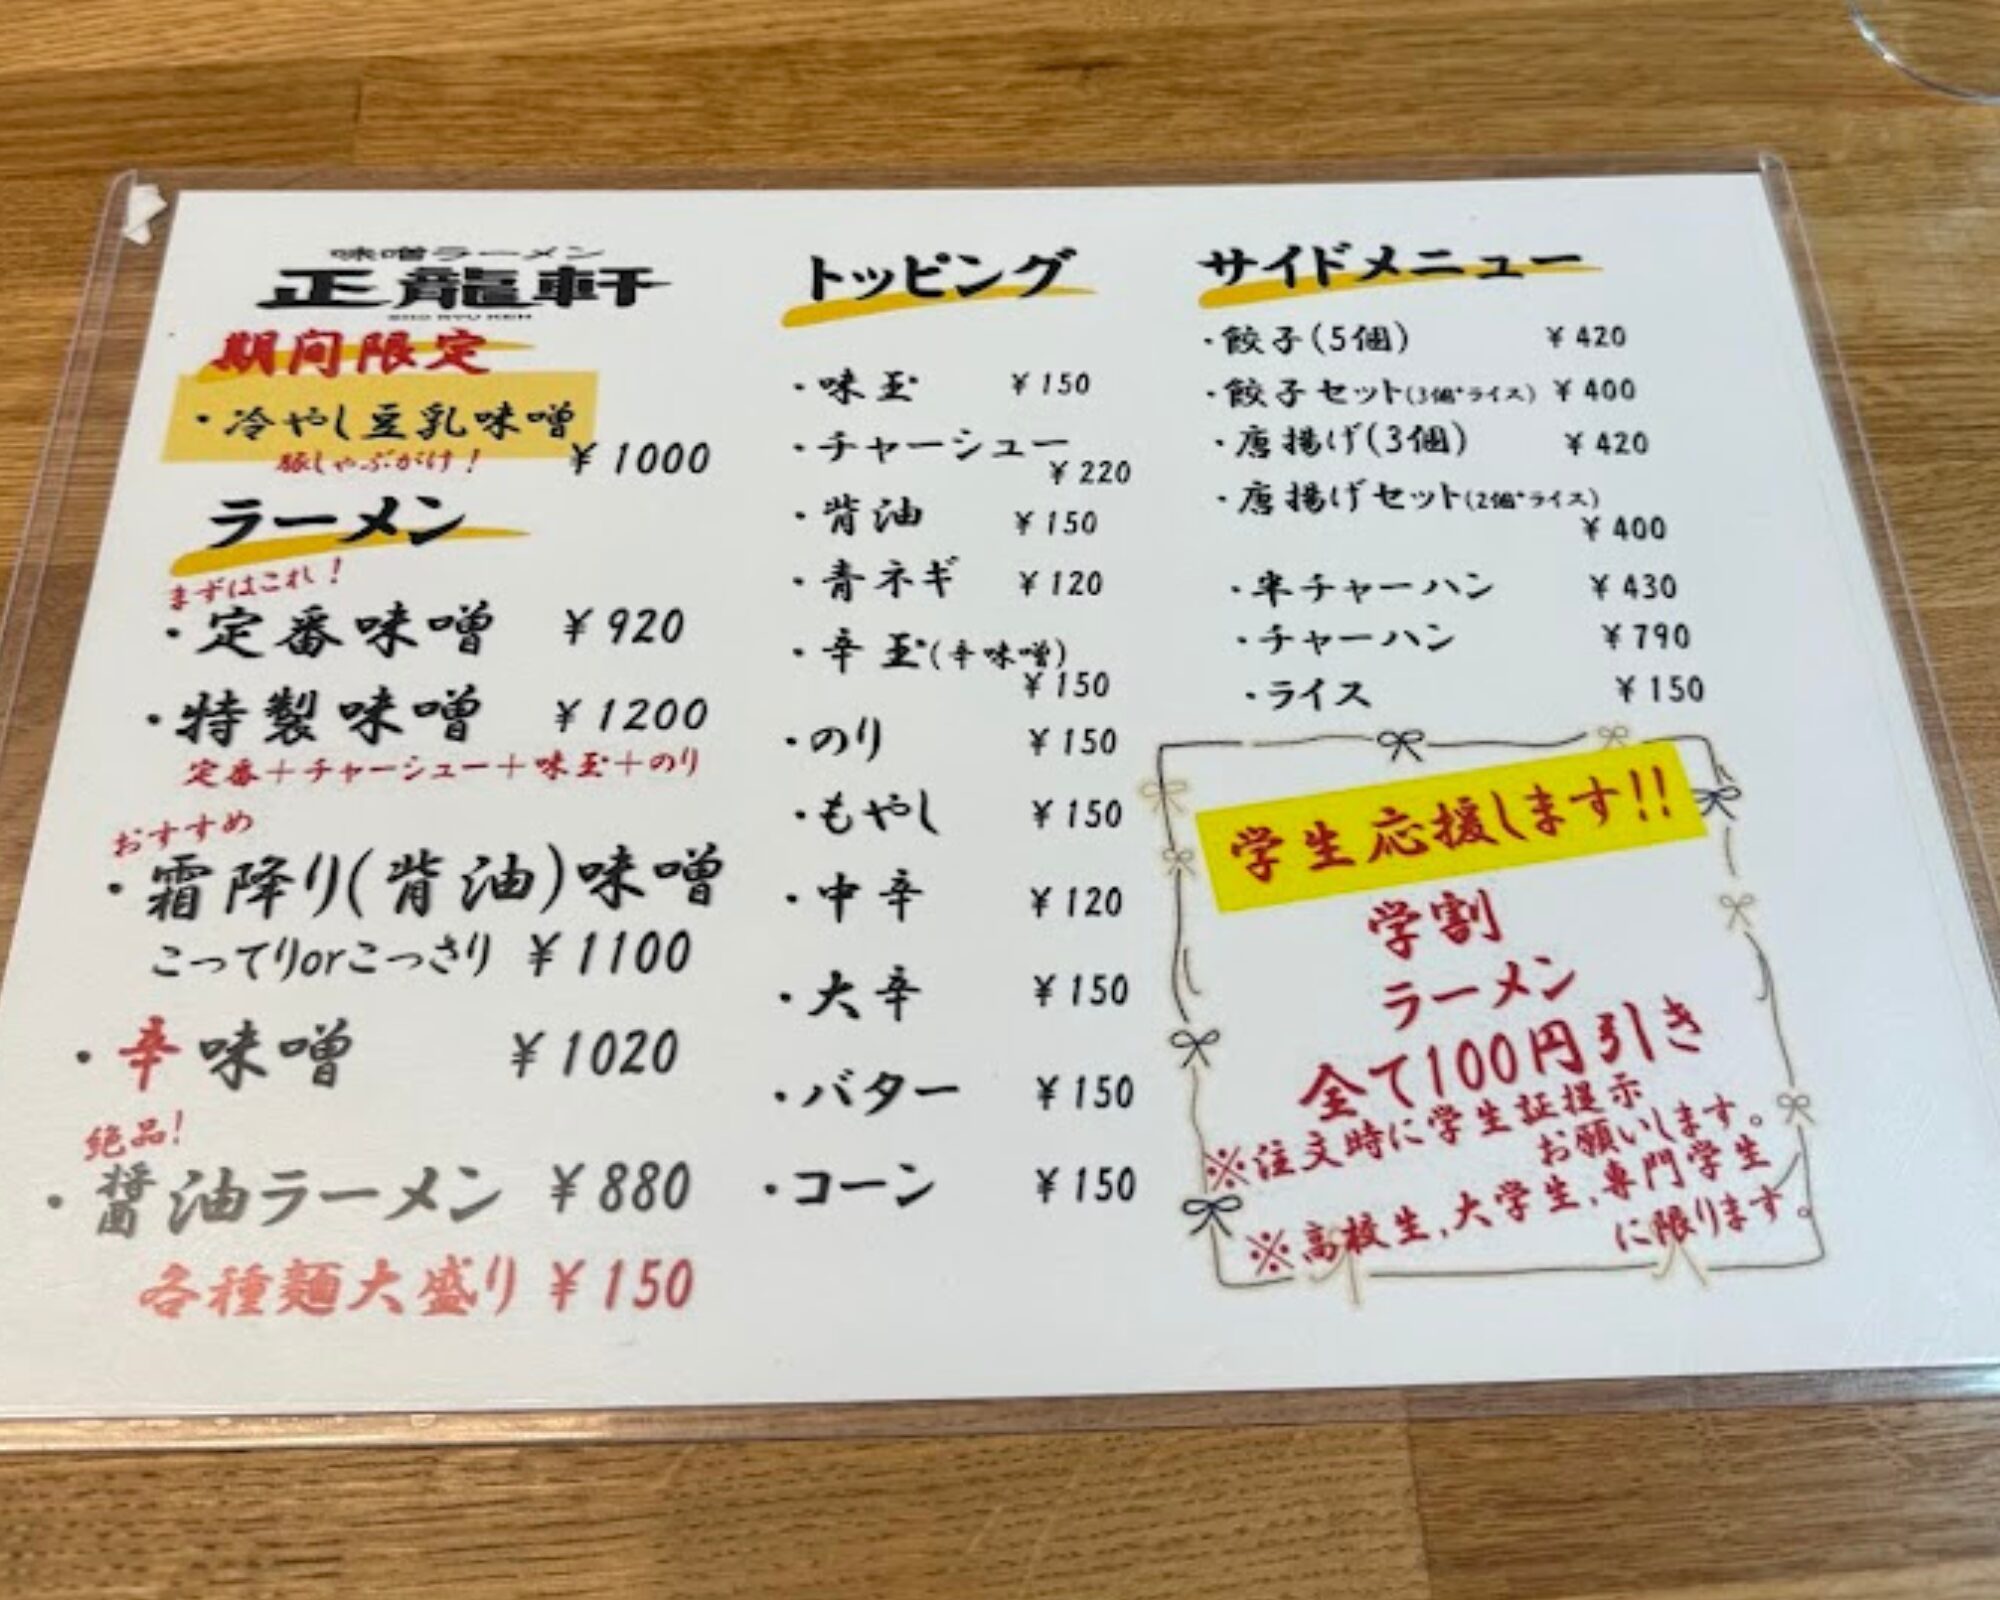 味噌ラーメン
正龍軒
SHO RYU KEN
期間限定
・冷やし豆乳味噌
豚しゃぶがけ！ ¥1000
ラーメン
まずはこれ！
・定番味噌 ¥920
・特製味噌 ¥1200
定番＋チャーシュー＋味玉＋のり
おすすめ
・霜降り(背油)味噌
こってりorこっさり ¥1100
・辛味噌 ¥1020
絶品！
・醤油ラーメン ¥880
各種麺大盛り ¥150
トッピング
・味玉 ¥150
・チャーシュー
¥220
・背油 ¥150
・青ネギ ¥120
・辛玉(辛味噌)
¥150
・のり ¥150
・もやし ¥150
・中辛 ¥120
・大辛 ¥150
・バター ¥150
・コーン ¥150
サイドメニュー
・餃子(5個) ¥420
・餃子セット(3個+ライス) ¥400
・唐揚げ(3個) ¥420
・唐揚げセット(2個+ライス)
¥400
・半チャーハン ¥430
・チャーハン ¥790
・ライス ¥150
学生応援します!!
学割
ラーメン
全て100円引き
※注文時に学生証提示
お願いします。
※高校生,大学生,専門学生
に限ります。